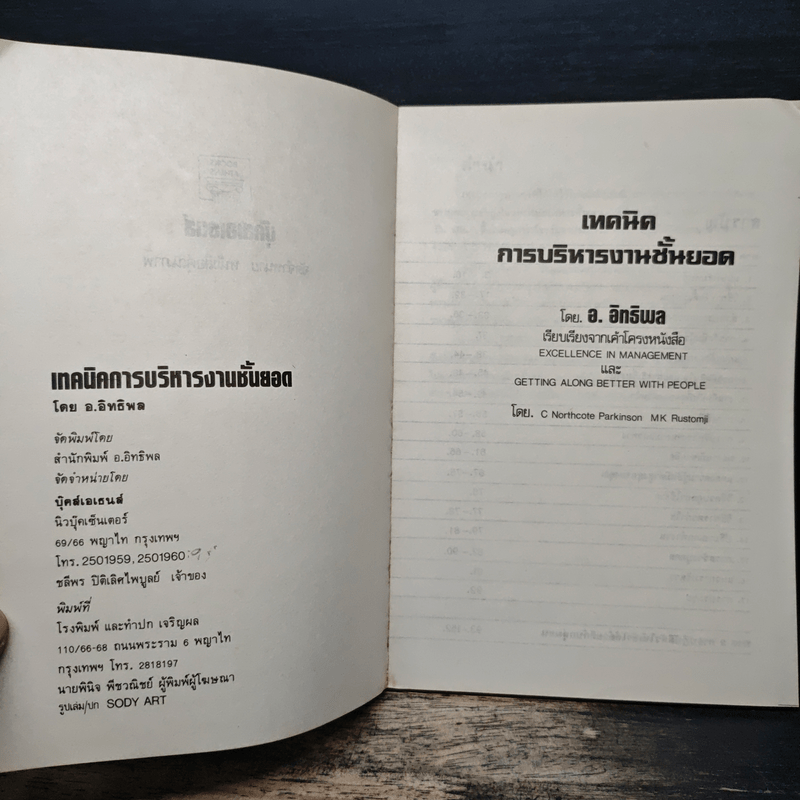 เทคนิคการบริหารงานชั้นยอด
โดย อ.อิทธิพล
จัดพิมพ์โดย
สำนักพิมพ์ อ.อิทธิพล
จัดจำหน่ายโดย
บุ๊คส์เอเธนส์
นิวบุ๊คเซ็นเตอร์
69/66 พญาไท กรุงเทพฯ
โทร. 2501959, 2501960
ชลีพร ปิติเลิศไพบูลย์ เจ้าของ
พิมพ์ที่
โรงพิมพ์ และทำปก เจริญผล
110/66-68 ถนนพระราม 6 พญาไท
กรุงเทพฯ โทร. 2818197
นายพินิจ พืชวณิชย์ ผู้พิมพ์ผู้โฆษณา
รูปเล่ม/ปก SODY ART
เทคนิค
การบริหารงานชั้นยอด
โดย. อ. อิทธิพล
เรียบเรียงจากเค้าโครงหนังสือ
EXCELLENCE IN MANAGEMENT
และ
GETTING ALONG BETTER WITH PEOPLE
โดย. C Northcote Parkinson MK Rustomji